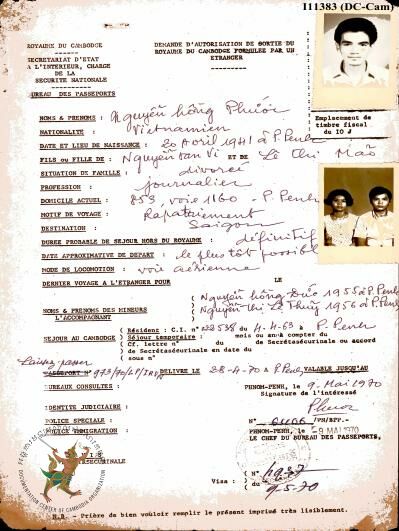 111383 (DC-Cam)
ROYAUME DU CAMBODGE
SECRETARIAT D'ETAT
A L'INTERIEUR, CHARGE
DE LA
SECURITE NATIONALE
BUREAU DES PASSEPORTS
DEMANDE D'AUTORISATION DE SORTIE DU
ROYAUME DU CAMBODGE FORMULEE PAR UN
ETRANGER
Emplacement de
timbre fiscal
du 10 J
NOMS & PRENOMS : Nguyễn hồng Phước
NATIONALITE : Vietnamien
DATE ET LIEU DE NAISSANCE : 20 Avril 1941 à P. Penh
FILS ou FILLE DE : Nguyễn van Vi ET DE Lê thi Mão
SITUATION DE FAMILLE : divorcé
PROFESSION : journalier
DOMICILE ACTUEL : 853, voie 1160 - P. Penh
MOTIF DU VOYAGE : Rapatriement
DESTINATION : Saigon
DUREE PROBABLE DE SEJOUR HORS DU ROYAUME : définitif
DATE APPROXIMATIVE DE DEPART : le plus tôt possible
MODE DE LOCOMOTION : voie aérienne
DERNIER VOYAGE A L'ETRANGER POUR LE
NOMS & PRENOMS DES MINEURS
L'ACCOMPAGNANT
( Nguyễn hồng Đức 1955 à P. Penh
( Nguyễn thi Lê Thuỷ 1956 à P. Penh
SEJOUR AU CAMBODGE
( Résident : C.I. n° 228538 du 4-4-63 à P. Penh
( Séjour temporaire : mois ou an à compter du
( Cf. lettre n° du de Secrétasécurinale ou accord
de Secrétasécurinale en date du
sous n°
Laissez passer
PASSEPORT N° DELIVRE LE 28-4-70 à P. Penh VALABLE JUSQU'AU
BUREAUX CONSULTES :
PHNOM-PENH, le 9 Mai 1970
Signature de l'intéressé
Phước
IDENTITE JUDICIAIRE :
POLICE SPECIALE :
POLICE IMMIGRATION :
N° /PH/BPP.-
PHNOM-PENH, le -9 MAI 1970
LE CHEF DU BUREAU DES PASSEPORTS,
Visa : ( N° 4937
( du 9.5.70
DOCUMENTATION CENTER OF CAMBODIA ORGANIZATION
N.B. - Prière de bien vouloir remplir le présent imprimé très lisiblement.